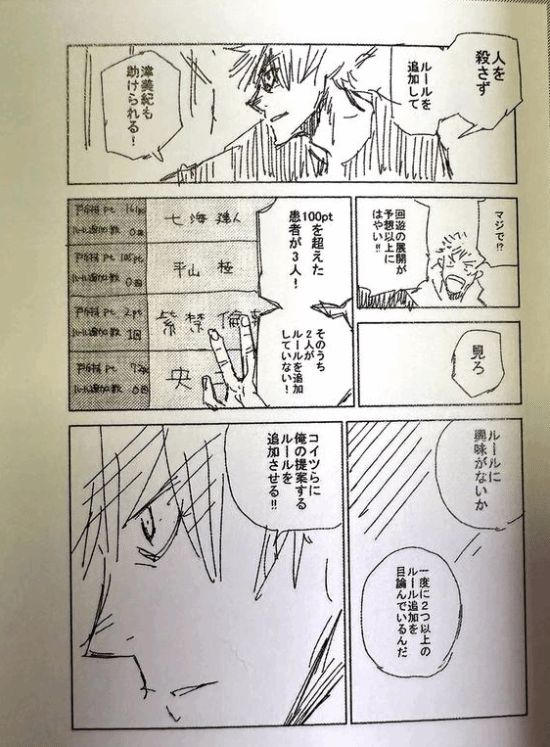 人を
殺さず
ルールを
追加して
津美紀も
助けられる！
マジで!?
回遊の展開が
予想以上に
はやい!!
100ptを超えた
患者が3人！
そのうち
2人が
ルールを追加
していない！
七海
ルール追加数 0回
平山 極
ルール追加数 0回
紫禁
pt 2pt
ルール追加数 1回
央
ルール追加数 0回
見ろ
ルールに
興味がないか
一度に2つ以上の
ルール追加を
目論んでいるんだ
コイツらに
俺の提案する
ルールを
追加させる!!